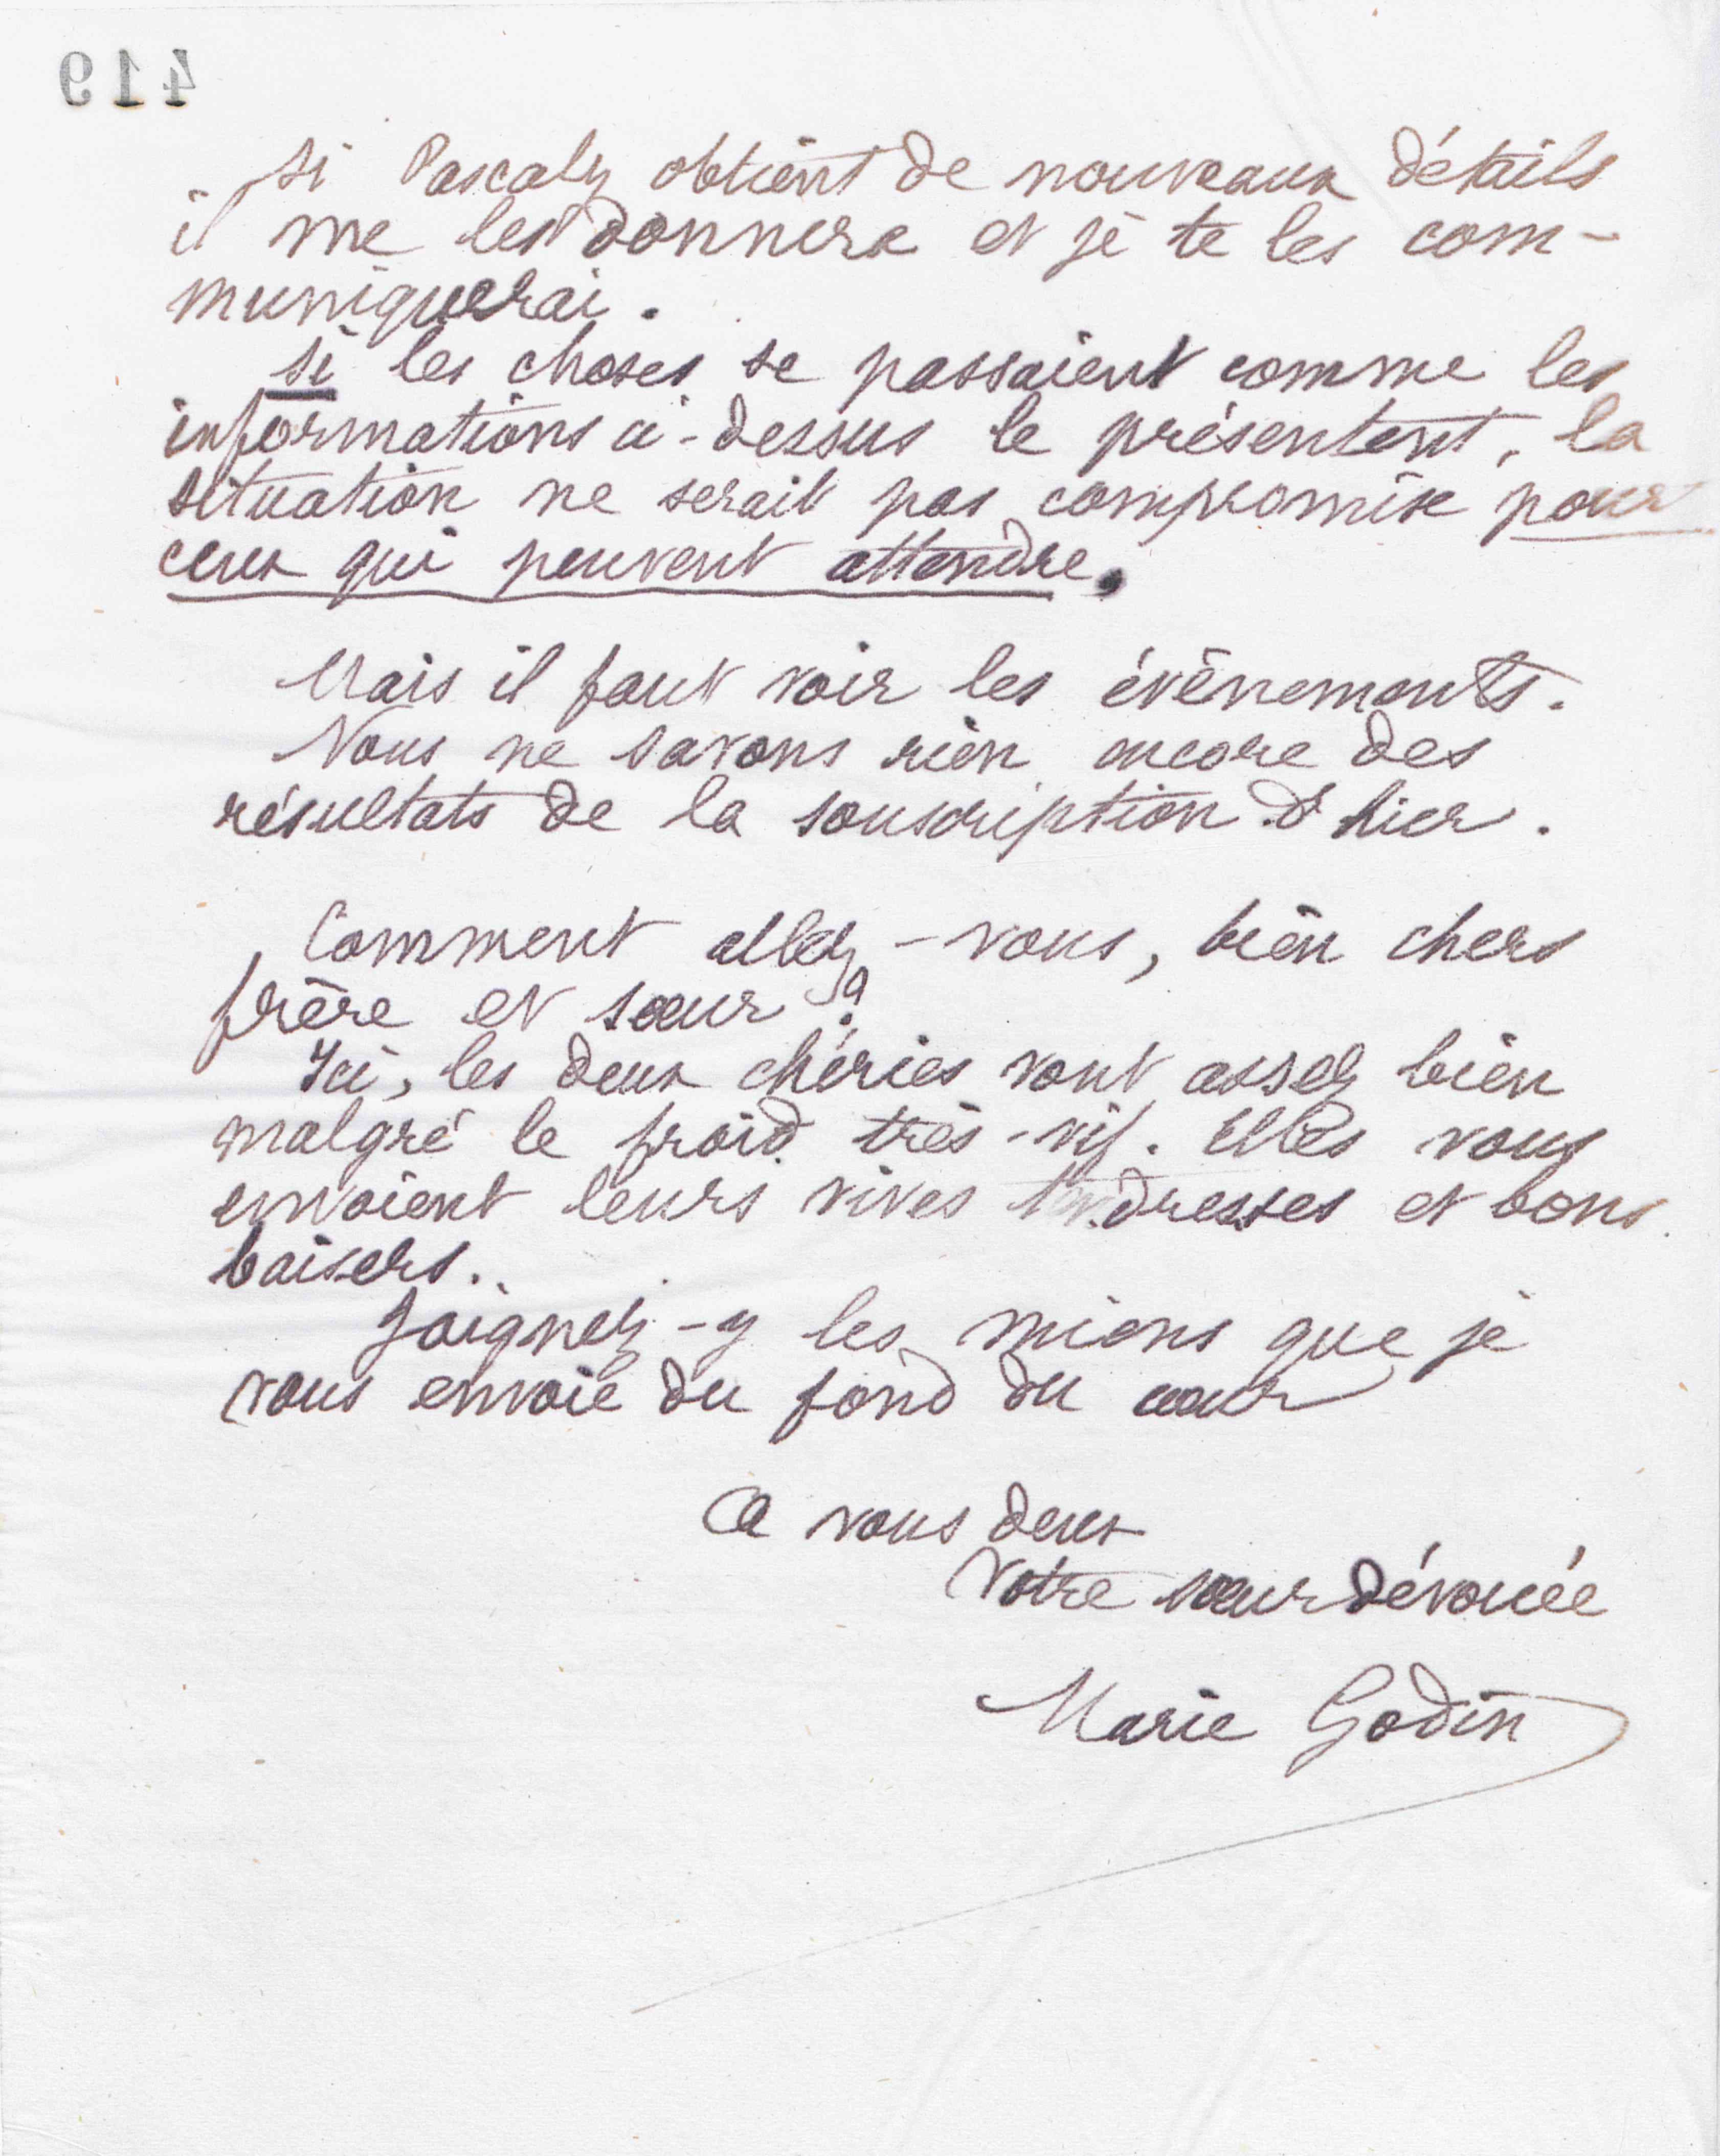 419
Si Pascaly obtient de nouveaux détails
il me les donnera et je te les com-
muniquerai.
Si les choses se passaient comme les
informations ci-dessus le présentent, la
situation ne serait pas compromise pour
ceux qui peuvent attendre.
Mais il faut voir les événements.
Nous ne savons rien encore des
résultats de la souscription d'hier.
Comment allez-vous, bien chers
frère et sœur ?
Ici, les deux chéries vont assez bien
malgré le froid très-vif. Elles vous
envoient leurs vives tendresses et bons
baisers.
Joignez-y les miens que je
vous envoie du fond du cœur
A vous deux
Votre sœur dévouée
Marie Godin